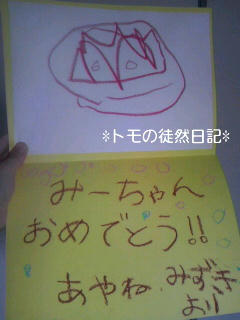 *トモの徒然日記*
みーちゃん
おめでとう!!
あやね.みずき
より